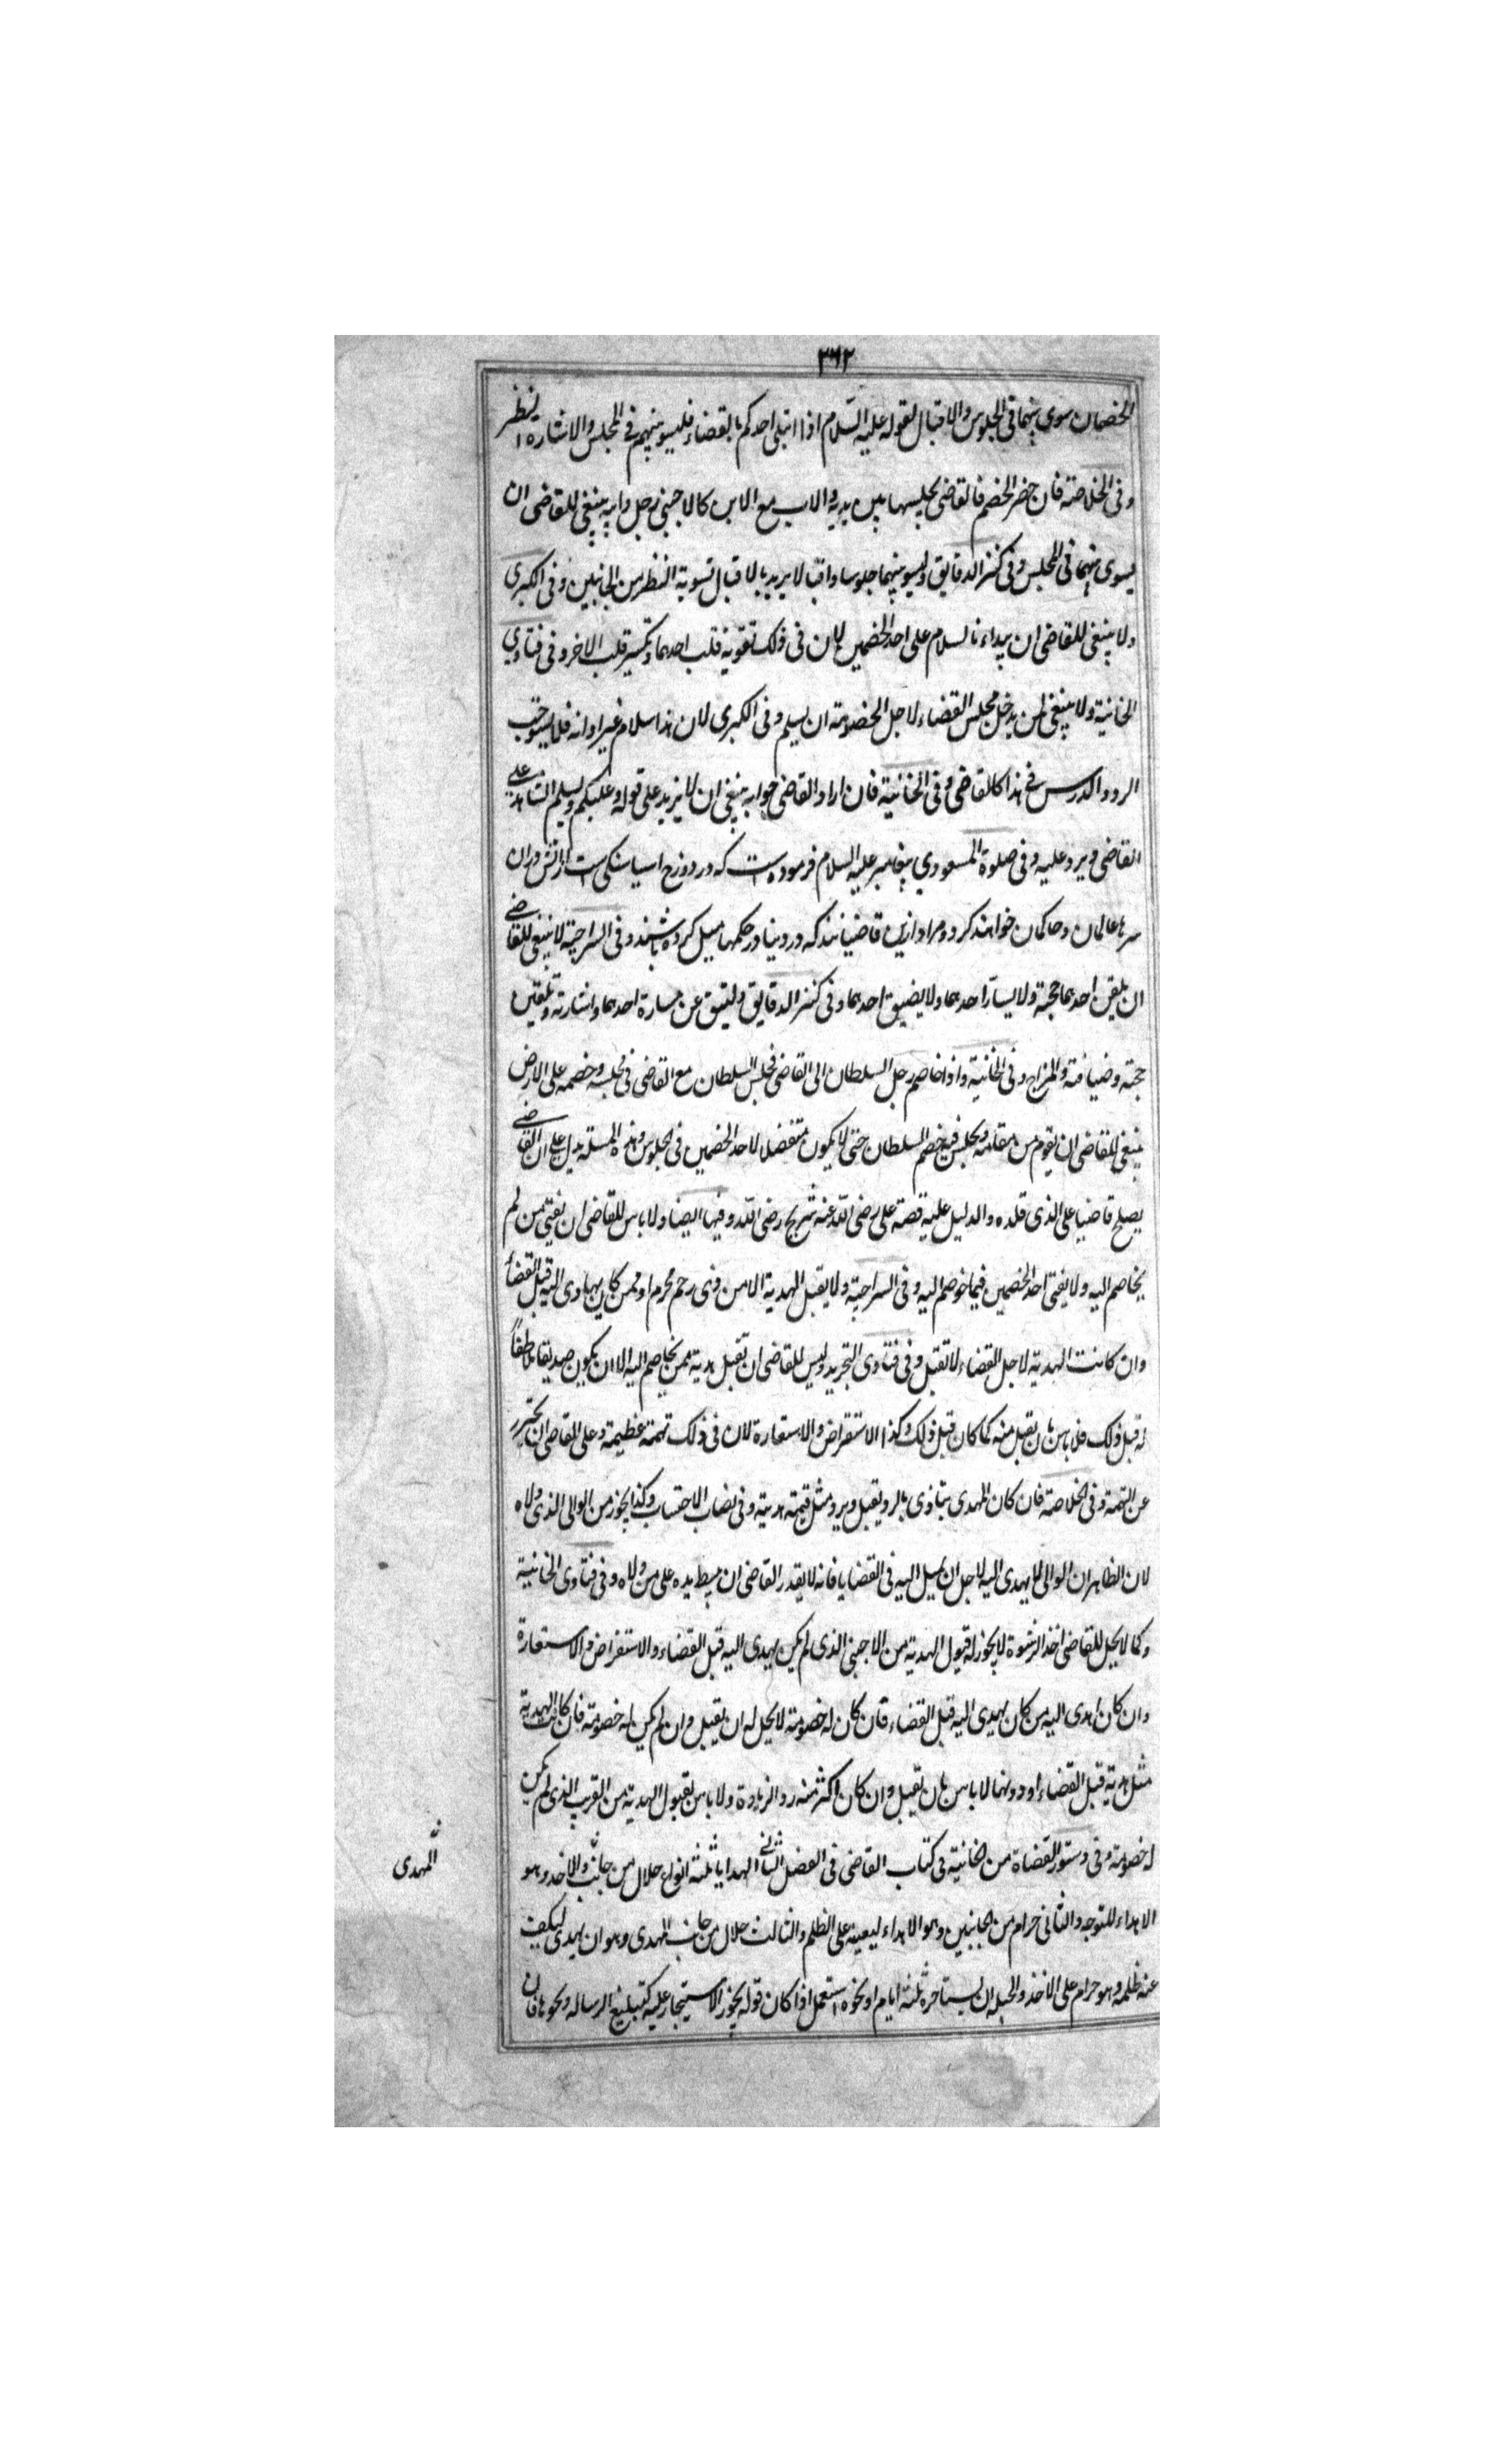 ٣٦٢
الخصمان سوى بينهما فى الجلوس والاقبال لقوله عليه السّلام اذا ابتلى احدكم بالقضاء فليسو بينهم فى المجلس والاشارة والنظر
وفى الخلاصة فان حضر الخصم فالقاضى يجلسهما بين يديه والاب مع الابن كالاجنبى رجل وابيه ينبغى للقاضى ان
يسوى بينهما فى المجلس وفى كنز الدقايق وليسو بينهما جلوسا واقبالا يريد بالاقبال تسوية النظر من الجانبين وفى الكبرى
ولا ينبغى للقاضى ان يبداء بالسلام على احد الخصمين لان فى ذلك تقوية قلب احدهما وتكسير قلب الاخر وفى فتاوى
الخانية ولا ينبغى لمن يدخل مجلس القضاء لاجل الخصومة ان يسلم وفى الكبرى لان هذا سلام غير اوانه فلا يستوجب
الرد والمدرس فى هذا كالقاضى وفى الخانية فان اراد القاضى جوابه ينبغى ان لا يزيد على قوله وعليكم ويسلم الشاهد على
القاضى ويرد عليه وفى صلوة المسعودي پيغامبر عليه السلام فرموده است كه در دوزخ اسيا سنكى است از اتش دران
سرها عالمان وحاكمان خواهند كرد ومراد ازين قاضيانند كه در دنيا در حكمها ميل كرده باشند وفى السراجية لا ينبغى للقاضى
ان يلقن احدهما حجة ولا يسارّ احدهما ولا يضيق احدهما وفى كنز الدقايق وليتق عن مسارة احدهما واشارته وتلقين
حجته وضيافته والمزاح وفى الخانية واذا خاصم رجل السلطان الى القاضى فجلس السلطان مع القاضى فى مجلسه وخصمه على الارض
ينبغى للقاضى ان يقوم من مقامه ويجلس فيه خصم السلطان حتى لا يكون متفضلا لاحد الخصمين فى الجلوس وهذه المسئلة يدل على ان القاضى
يصلح قاضيا على الذى قلده والدليل عليه قصة على رضى اللّه عنه شريح رضى اللّه وفيها ايضا ولا باس للقاضى ان يفتى من لم
يخاصم اليه ولا يفتى احد الخصمين فيما خوصم اليه وفى السراجية ولا يقبل الهدية الا من ذى رحم محرم او ممن كان يهادى اليه قبل القضاء
وان كانت الهدية لاجل القضاء لا تقبل وفى فتاوى التجريد وليس للقاضى ان تقبل هدية ممن يخاصم اليه الا ان يكون صديقا ملاطفًا
له قبل ذلك فلا باس بان يقبل منه كما كان قبل ذلك وكذا الاستقراض والاستعارة لان فى ذلك تهمة عظيمة وعلى القاضى ان يحترز
عن التهمة وفى الخلاصة فان كان المهدى يتاذى بالرد يقبل ويرد مثل قيمة هديته وفى نصاب الاحتساب وكذا يجوز من الوالى الذى ولاه
لان الظاهر ان الوالى لا يهدى اليه لاجل ان يميل اليه فى القضايا فانه لا يقدر القاضى ان يبسط يده على من ولاه وفى فتاوى الخانية
وكما لا يحل للقاضى اخذ الرشوة لا يجوز له قبول الهدية من الاجنبى الذى لم يكن يهدى اليه قبل القضاء والاستقراض والاستعارة
وان كان اهدى اليه من كان يهدى اليه قبل القضاء فان كان له خصومة لا يحل له ان يقبل وان لم يكن له خصومة فان كانت الهدية
مثل هدية قبل القضاء او دونها لا باس بان يقبل وان كان اكثر منه رد الزيادة ولا باس بقبول الهدية من القريب الذى لم يكن
له خصومة وفى دستور القضاة من الخانية فى كتاب القاضى فى الفصل الثانى الهدايا ثلثة انواع حلال من جانب والاخذ وهو
المهدى
الاهداء للتوجه والثانى حرام من الجانبين وهو الاهداء ليعينه على الظلم والثالث حلال من جانب المهدى وهو ان يهدى ليكف
عنه ظلمه وهو حرام على الاخذ والحيلة ان يستاجره ثلثة ايام او نحوه استعمل اذا كان قوله يجوز الاستيجار عليه كتبليغ الرساله ونحوها فان